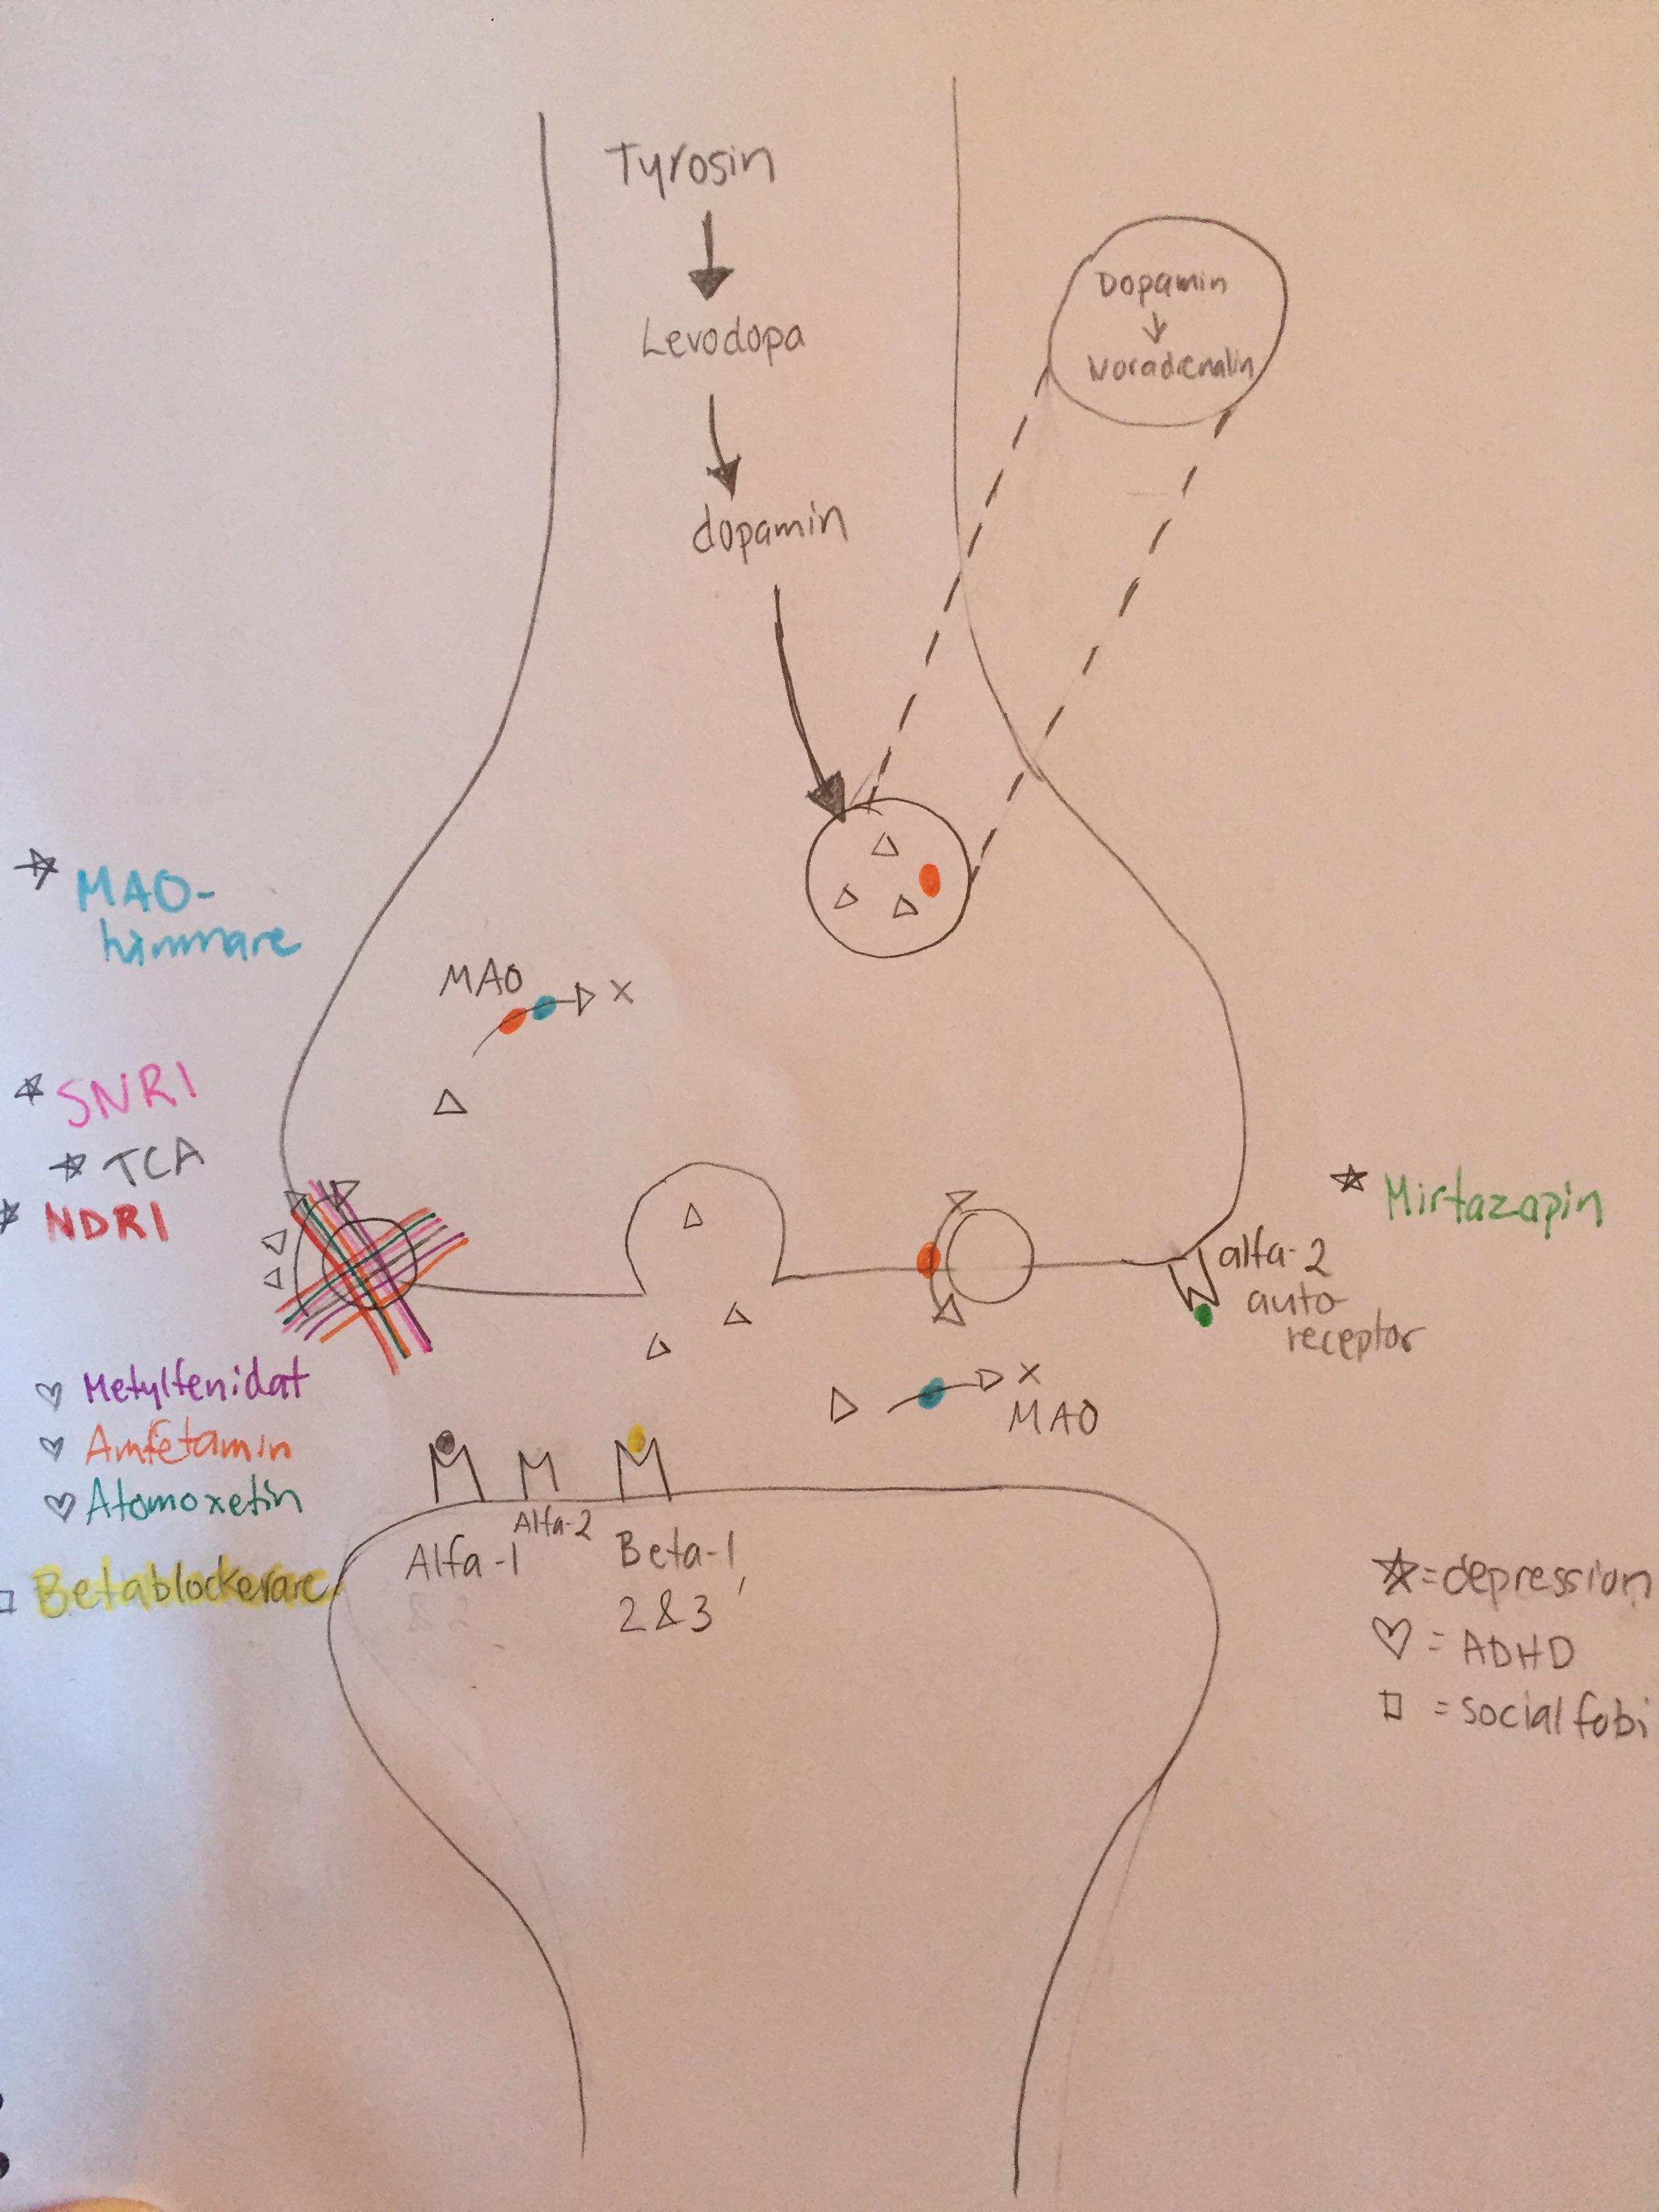 Tyrosin
Levodopa
dopamin
Dopamin
Noradrenalin
MAO-
hämmare
MAO
x
SNRI
TCA
NDRI
Mirtazapin
alfa-2
auto
receptor
x
MAO
Metylfenidat
Amfetamin
Atomoxetin
Betablockerare
Alfa-1
Alfa-2
Beta-1,
2&3
& 2
= depression
= ADHD
= social fobi